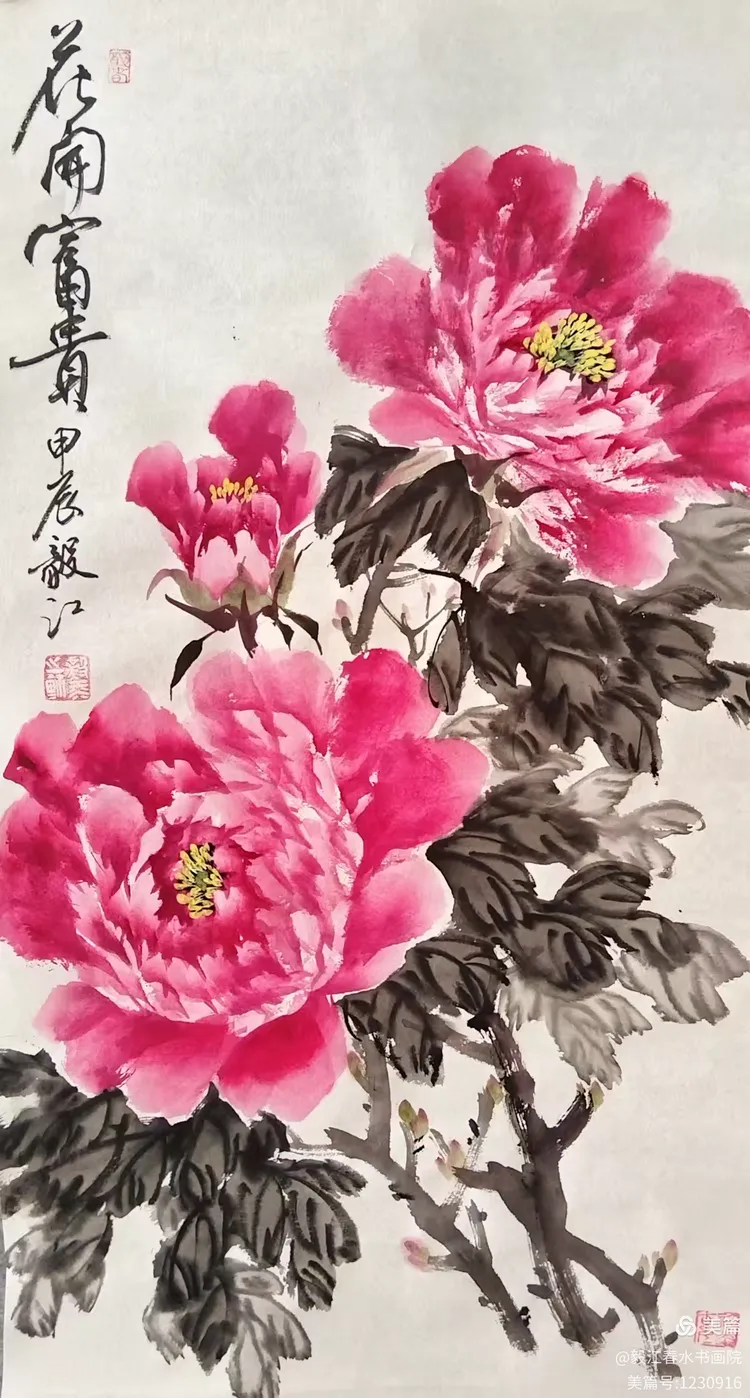 花開富貴 甲辰 毅江
美篇
@毅江春水书画院
美篇号:1230916